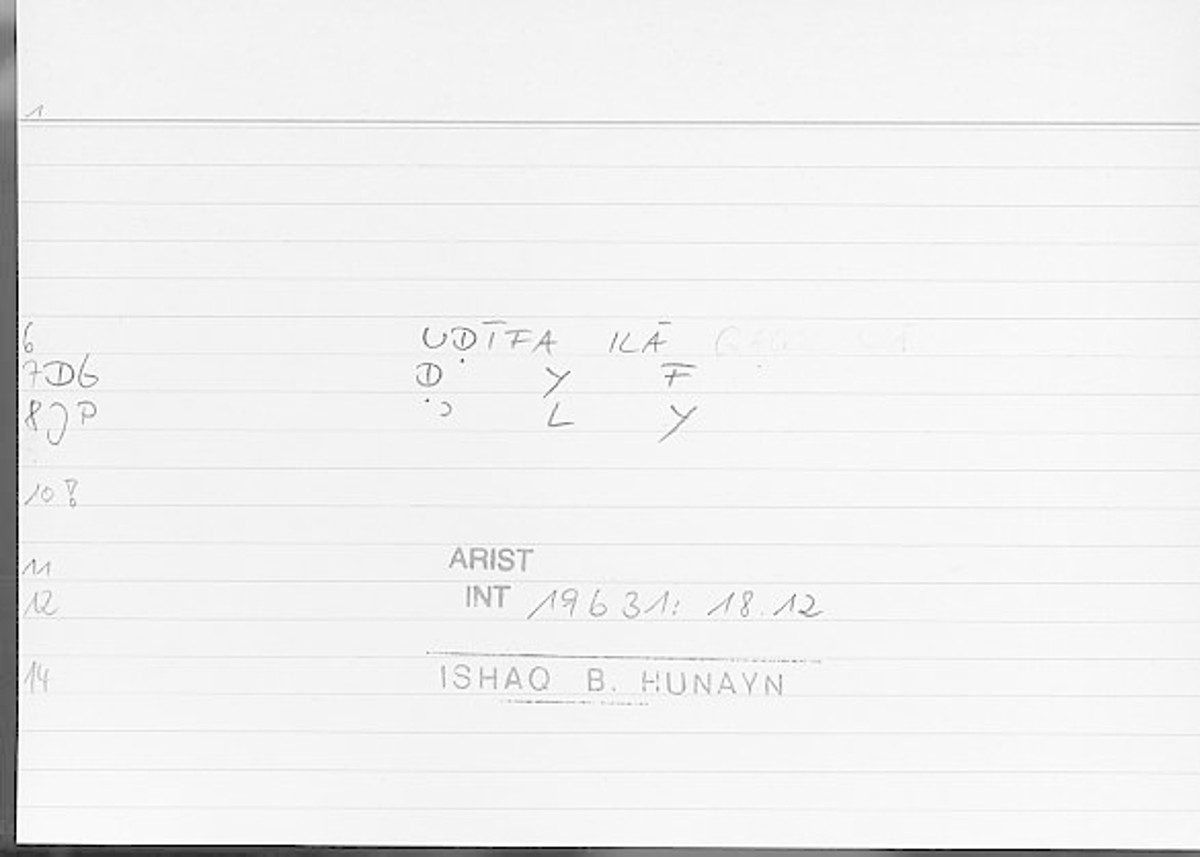 1
6 UḌĪFA ILĀ
7DG Ḍ Y F
8JP ʾ L Y
10
11 ARIST
12 INT 19631: 18.12
14 ISHAQ B. HUNAYN